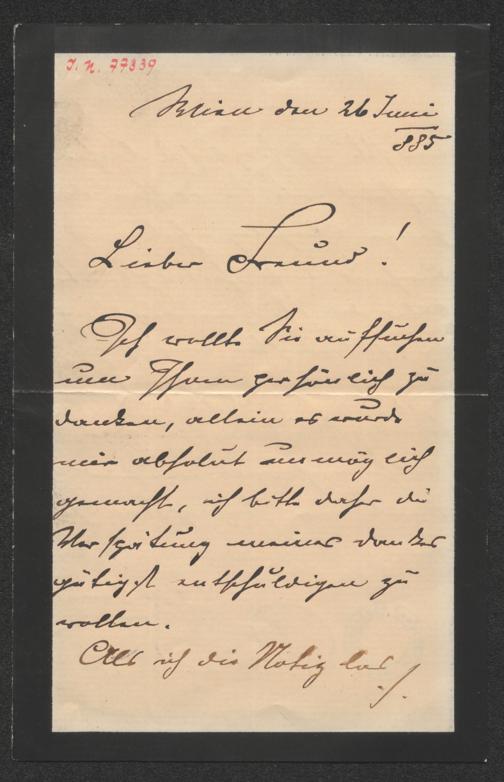 J. N. 77339
Wien den 26 Juni
885
Lieber Freund!
Ich wollte Sie aufsuchen
um Ihnen persönlich zu
danken, allein es wurde
mir absolut unmöglich
gemacht, ich bitte daher die
Verspätung meines Dankes
gütigst entschuldigen zu
wollen.
Als ich die Notiz las
./.